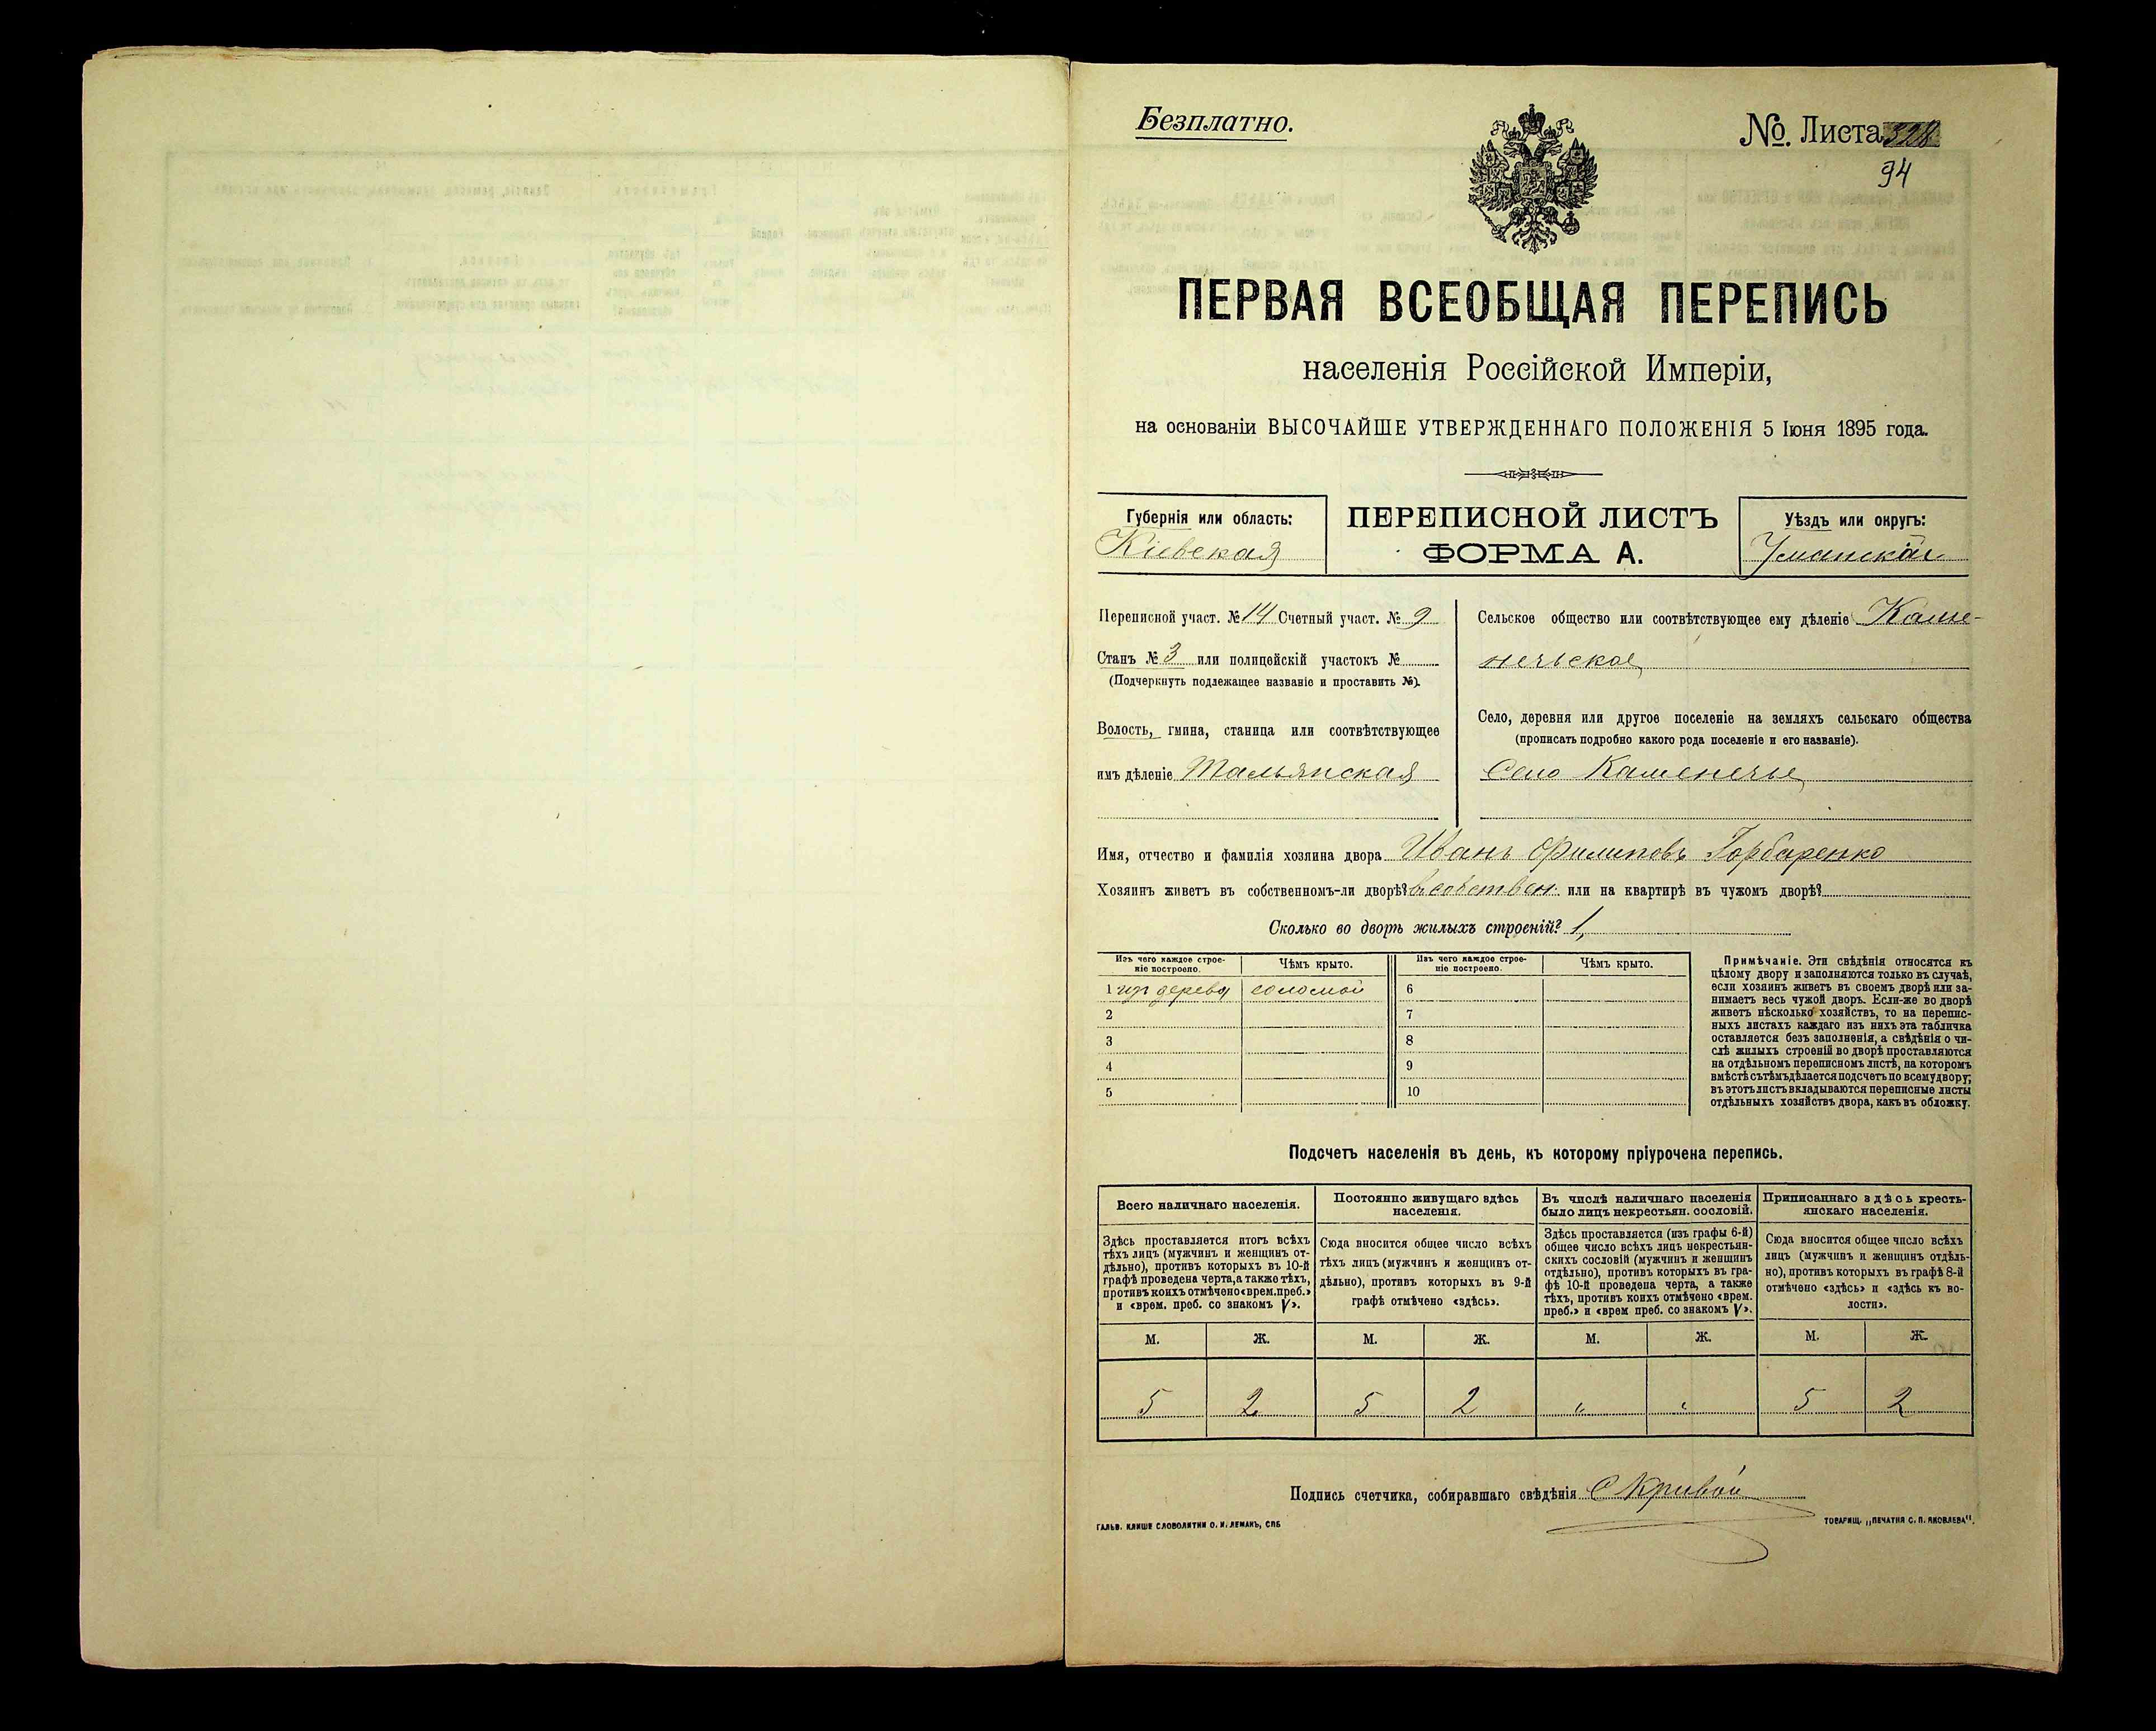 Безплатно.
№. Листа 328
94
ПЕРВАЯ ВСЕОБЩАЯ ПЕРЕПИСЬ
населенія Россійской Имперіи,
на основаніи ВЫСОЧАЙШЕ УТВЕРЖДЕННАГО ПОЛОЖЕНІЯ 5 Іюня 1895 года.
Губернія или область:
Кіевская
ПЕРЕПИСНОЙ ЛИСТЪ
ФОРМА А.
Уѣздъ или округъ:
Уманскій
Переписной участ. № 14 Счетный участ. № 9
Станъ № 3 или полицейскій участокъ №
(Подчеркнуть подлежащее названіе и проставить №).
Волость, гмина, станица или соотвѣтствующее
имъ дѣленіе Тальянская
Сельское общество или соотвѣтствующее ему дѣленіе Каме-
нечьское
Село, деревня или другое поселеніе на земляхъ сельскаго общества
(прописать подробно какого рода поселеніе и его названіе).
Село Каменечье
Имя, отчество и фамилія хозяина двора Иванъ Филиповъ Горбаренко
Хозяинъ живетъ въ собственномъ-ли дворѣ? в собствен. или на квартирѣ въ чужомъ дворѣ?
Сколько во дворѣ жилыхъ строеній? 1,
Изъ чего каждое строе-
ніе построено.
Чѣмъ крыто.
Изъ чего каждое строе-
ніе построено.
Чѣмъ крыто.
1 изъ дерева соломой 6
2 7
3 8
4 9
5 10
Примѣчаніе. Эти свѣдѣнія относятся къ
цѣлому двору и заполняются только въ случаѣ,
если хозяинъ живетъ въ своемъ дворѣ или за-
нимаетъ весь чужой дворъ. Если-же во дворѣ
живетъ нѣсколько хозяйствъ, то на перепис-
ныхъ листахъ каждаго изъ нихъ эта табличка
оставляется безъ заполненія, а свѣдѣнія о чи-
слѣ жилыхъ строеній во дворѣ проставляются
на отдѣльномъ переписномъ листѣ, на которомъ
вмѣстѣ съ тѣмъ дѣлается подсчетъ по всему двору;
въ этотъ листъ вкладываются переписные листы
отдѣльныхъ хозяйствъ двора, какъ въ обложку.
Подсчетъ населенія въ день, къ которому пріурочена перепись.
Всего наличнаго населенія.
Здѣсь проставляется итогъ всѣхъ
тѣхъ лицъ (мужчинъ и женщинъ от-
дѣльно), противъ которыхъ въ 10-й
графѣ проведена черта, а также тѣхъ,
противъ коихъ отмѣчено «врем. преб.»
и «врем. преб. со знакомъ V».
Постоянно живущаго здѣсь
населенія.
Сюда вносится общее число всѣхъ
тѣхъ лицъ (мужчинъ и женщинъ от-
дѣльно), противъ которыхъ въ 9-й
графѣ отмѣчено «здѣсь».
Въ числѣ наличнаго населенія
было лицъ некрестьян. сословій.
Здѣсь проставляется (изъ графы 6-й)
общее число всѣхъ лицъ некрестьян-
скихъ сословій (мужчинъ и женщинъ
отдѣльно), противъ которыхъ въ гра-
фѣ 10-й проведена черта, а также
тѣхъ, противъ коихъ отмѣчено «врем.
преб.» и «врем преб. со знакомъ V».
Приписаннаго здѣсь кресть-
янскаго населенія.
Сюда вносится общее число всѣхъ
лицъ (мужчинъ и женщинъ отдѣль-
но), противъ которыхъ въ графѣ 8-й
отмѣчено «здѣсь» и «здѣсь къ во-
лости».
М. Ж. М. Ж. М. Ж. М. Ж.
5 2 5 2 " " 5 2
Подпись счетчика, собиравшаго свѣдѣнія С Кривой
ГАЛЬВ. КЛИШЕ СЛОВОЛИТНИ О. И. ЛЕМАНЪ, СПБ
ТОВАРИЩ. „ПЕЧАТНЯ С. П. ЯКОВЛЕВА".